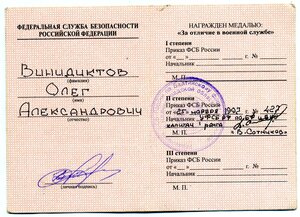 ФЕДЕРАЛЬНАЯ СЛУЖБА БЕЗОПАСНОСТИ
РОССИЙСКОЙ ФЕДЕРАЦИИ
Винидиктов
(фамилия)
Олег
(имя)
Александрович
(отчество)
(личная подпись)
НАГРАЖДЕН МЕДАЛЬЮ:
«За отличие в военной службе»
I степени
Приказ ФСБ России
от «__» ____ г. №
Начальник
М.П.
II степени
Приказ ФСБ России
марта г. №
Начальник
капитан I ранга
М.П. "В. Сотников"
III степени
Приказ ФСБ России
от «__» ____ г. №
Начальник
М.П.